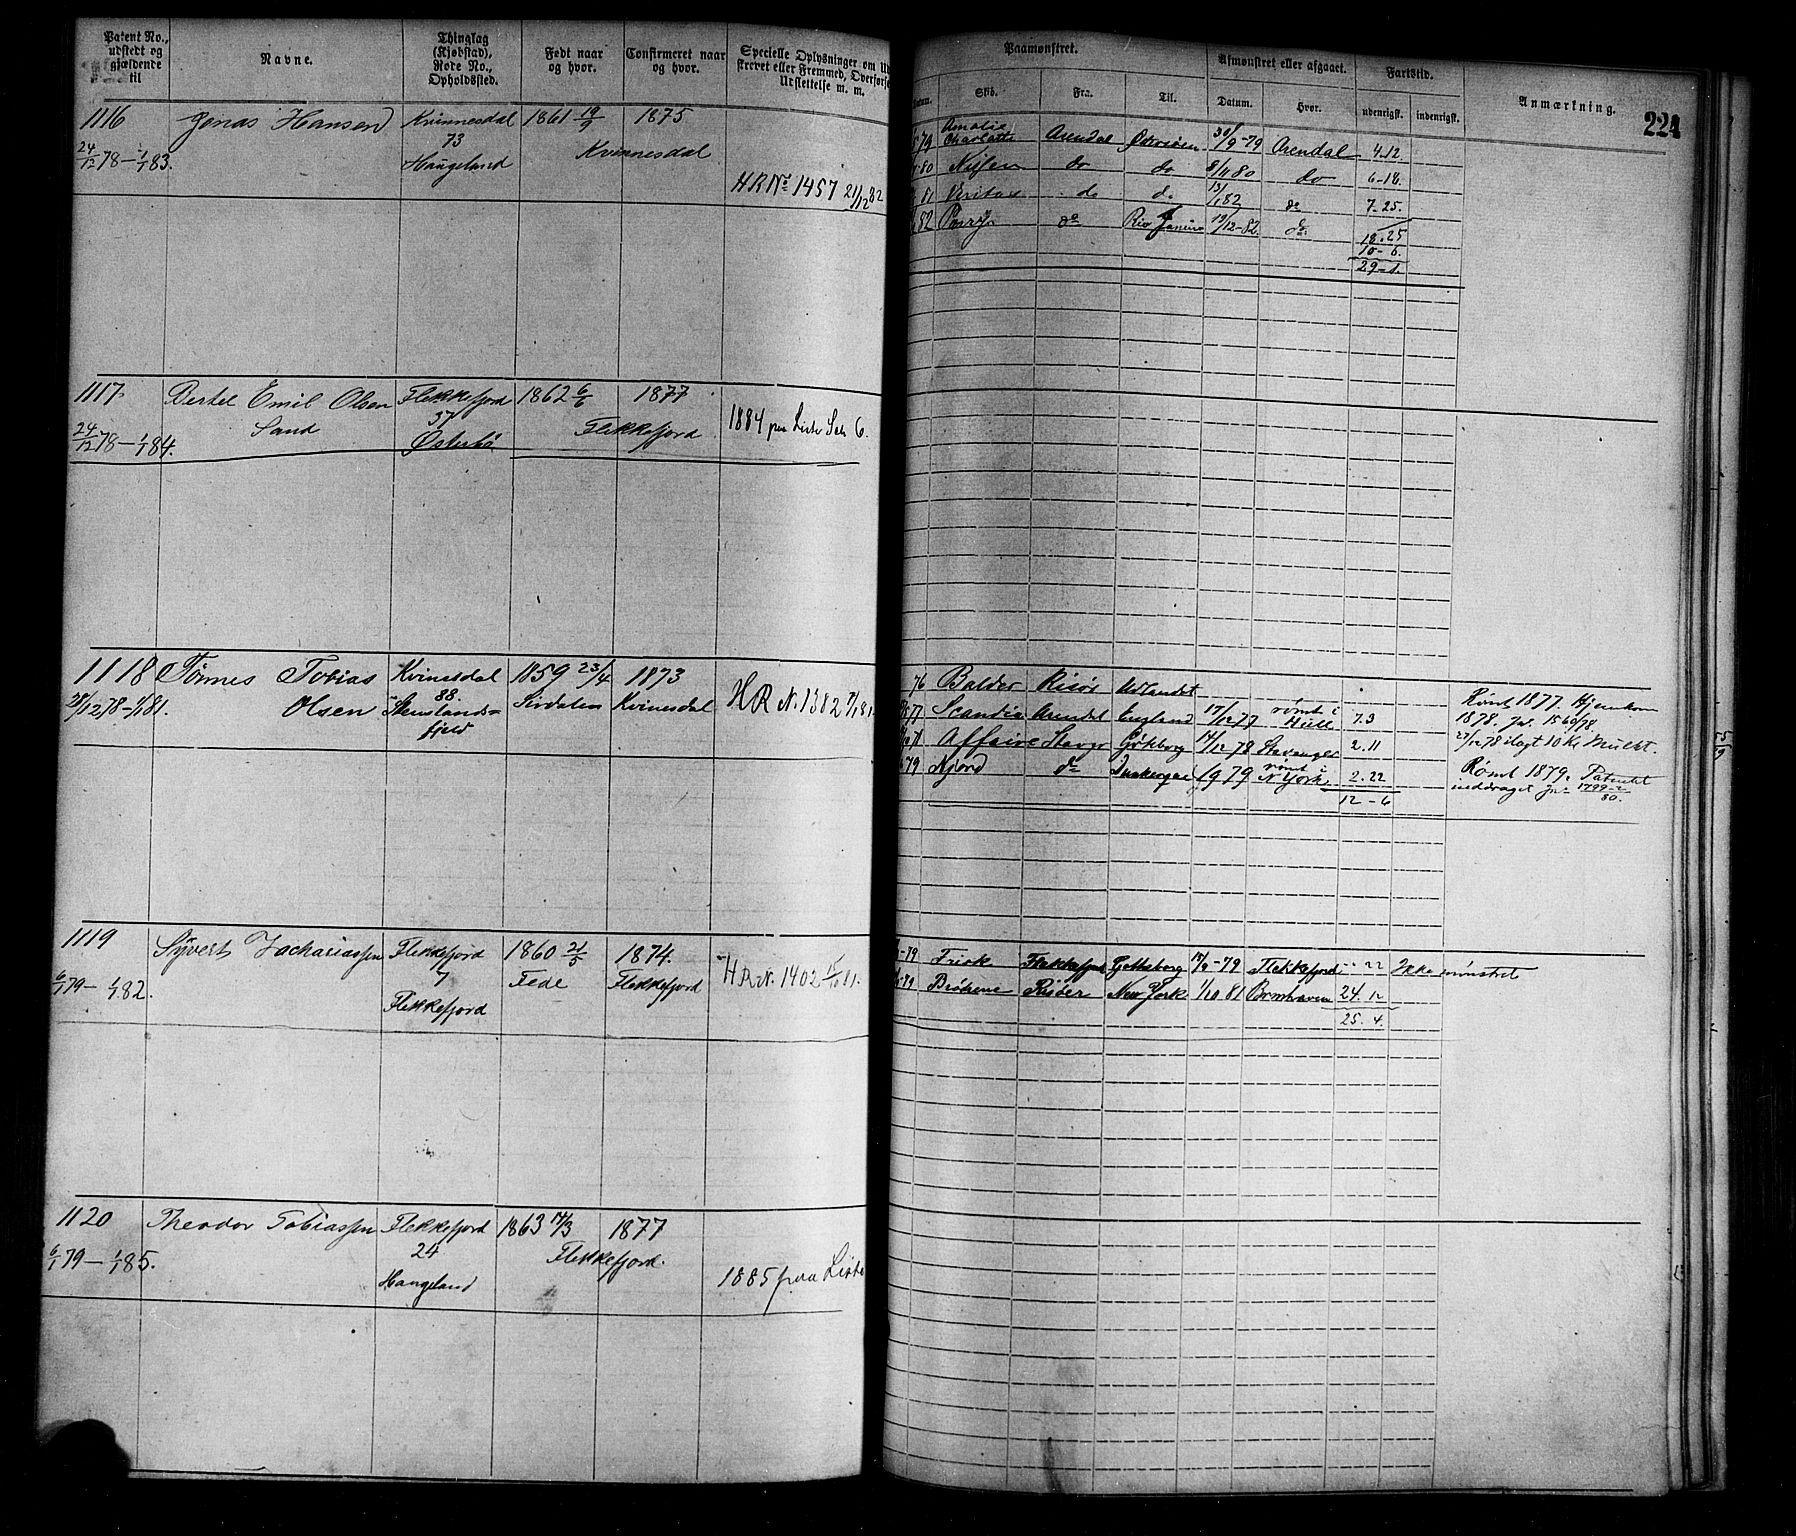 Patent No., udstedt og gjældende til
Navne.
Thinglag (Kjøbstad), Rode No., Opholdssted.
Født naar og hvor.
Confirmeret naar og hvor.
Specielle Oplysninger om Ud-
skrevet eller Fremmed, Overførse
Udslettelse m. m.
Paamønstret.
Afmønstret eller afgaaet.
Fartstid.
Anmærkning.
224
Datum.
Skib.
Fra.
Til.
Datum.
Hvor.
udenrigsk.
indenrigsk.
1116
24/12 78 – 1/1 83.
Jonas Hansen
Kvinnesdal
73
Haugeland
1861 19/9
1875
Kvinnesdal
HR No 1457 21/12 82
79 Amalie Charlotte Arendal Østersøen 30/9-79 Arendal 4.12.
80 do do 8/11 80 do 6-18.
81 Veritas do do 13/1 82 do 7-25.
82 do Rio Janeiro 19/12-82 do
18.25
10-6.
29-1.
1117
24/12 78 – 1/1 84.
Bertel Emil Olsen
Sand
Flekkefjord
37
Østerbø
1862 6/6
1877
Flekkefjord
1884 paa Liste 6.
1118
28/12 78 – 1/1 81.
Tørnes Tobias
Olsen
Kvinesdal
88.
Stenslands-
fjeld
1859 23/4
Sirdalen
1873
Kvinesdal
HR N. 1382 7/1 81
76 Balder Risør Udlandet
77 Scandia Arendal England 17/12 77 rømt i Hull 7.3
78 Affaire Stavgr Gøteborg 14/12 78 Stavanger 2.11
79 Njord do 1979 rømt i N York. 2.22
12-6
Rømt 1877. Hjemkom
1878.
27/12 78 ilagt 10 Kr Mulkt.
Rømt 1879. Patentet
inddraget Jn. 1799-2/80.
1119
6/1 79 – 1/1 82.
Syvert Zachariassen
Flekkefjord
7
Flekkefjord
1860 21/5
Fede
1874.
Flekkefjord
HR N. 1402 15/10 81.
79 Frisk Flekkefjord Gotheborg 17/9-79 Flekkefjord 22 Ikke mønstret
79 Brødrene Risøer New York 1/10 81 Bremhaven 24.12
25.4.
1120
6/1 79 – 1/1 85.
Theodor Tobiassen
Flekkefjord
24
Haugeland
1863 14/3
1877
Flekkefjord.
1885 paa Liste